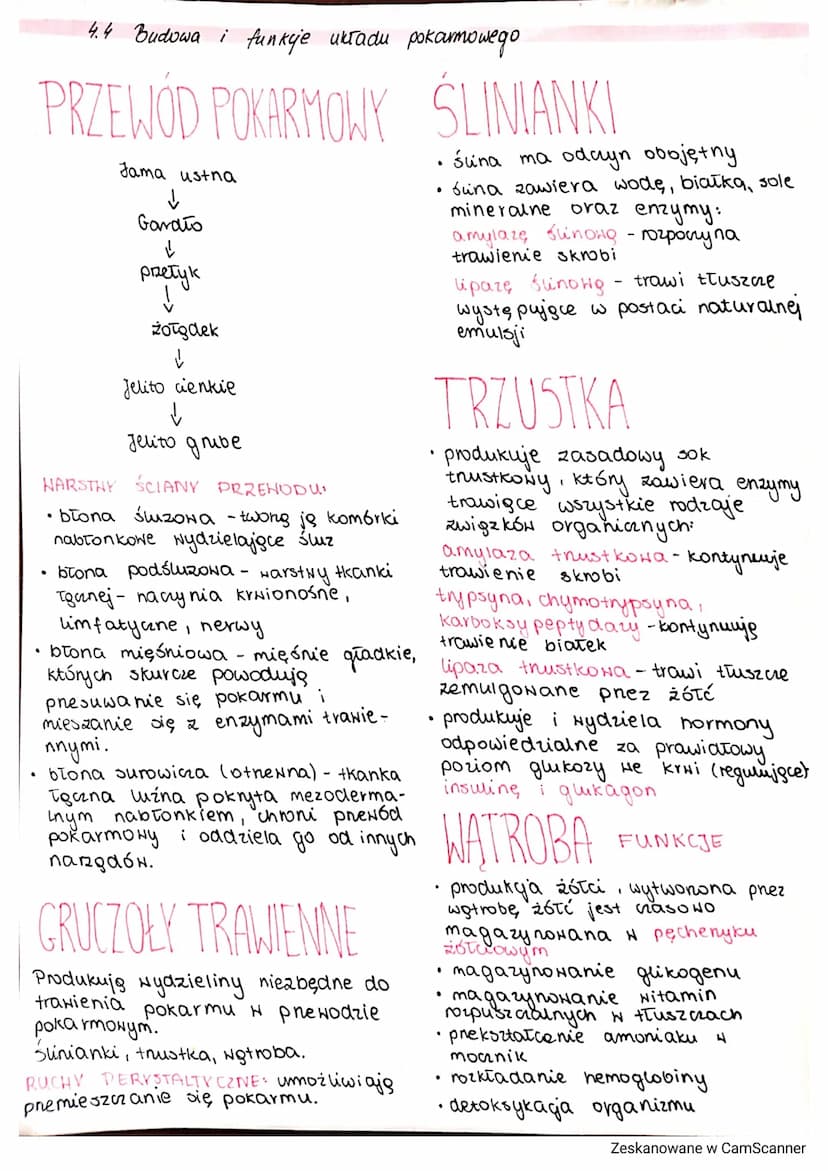 4.4 Budowa i funkcje układu pokarmowego
PRZEWÓD POKARMOWY
Jama ustna
↓
Gardło
↓
przełyk
↓
żołądek
↓
Jelito cienkie
↓
Jelito grube
WARSTWY ŚCIANY PRZEWODU:
• błona śluzowa - tworzą ją komórki
nabłonkowe wydzielające śluz
• błona podśluzowa - warstwy tkanki
łącznej - naczynia krwionośne,
limfatyczne, nerwy
• błona mięśniowa - mięśnie gładkie,
których skurcze powodują
przesuwanie się pokarmu i
mieszanie się z enzymami trawie-
nnymi.
• błona surowicza (otrzewna) - tkanka
łączna luźna pokryta mezoderma-
lnym nabłonkiem, chroni przewód
pokarmowy i oddziela go od innych
narządów.
GRUCZOŁY TRAWIENNE
Produkują wydzieliny niezbędne do
trawienia pokarmu w przewodzie
pokarmowym.
Ślinianki, trzustka, wątroba.
RUCHY PERYSTALTYCZNE: umożliwiają
przemieszczanie się pokarmu.
ŚLINIANKI
• ślina ma odczyn obojętny
• ślina zawiera wodę, białka, sole
mineralne oraz enzymy:
amylazę ślinową - rozpoczyna
trawienie skrobi
lipazę ślinową - trawi tłuszcze
występujące w postaci naturalnej
emulsji
TRZUSTKA
• produkuje zasadowy sok
trzustkowy, który zawiera enzymy
trawiące wszystkie rodzaje
związków organicznych:
amylaza trzustkowa - kontynuuje
trawienie skrobi
trypsyna, chymotrypsyna,
karboksypeptydazy - kontynuują
trawienie białek
lipaza trzustkowa - trawi tłuszcze
zemulgowane przez żółć
• produkuje i wydziela hormony
odpowiedzialne za prawidłowy
poziom glukozy we krwi (regulujące)
insulinę i glukagon
WĄTROBA FUNKCJE
• produkcja żółci, wytworzona przez
wątrobę żółć jest czasowo
magazynowana w pęcherzyku
żółciowym
• magazynowanie glikogenu
• magazynowanie witamin
rozpuszczalnych w tłuszczach
• przekształcanie amoniaku w
mocznik
• rozkładanie hemoglobiny
• detoksykacja organizmu
Zeskanowane w CamScanner